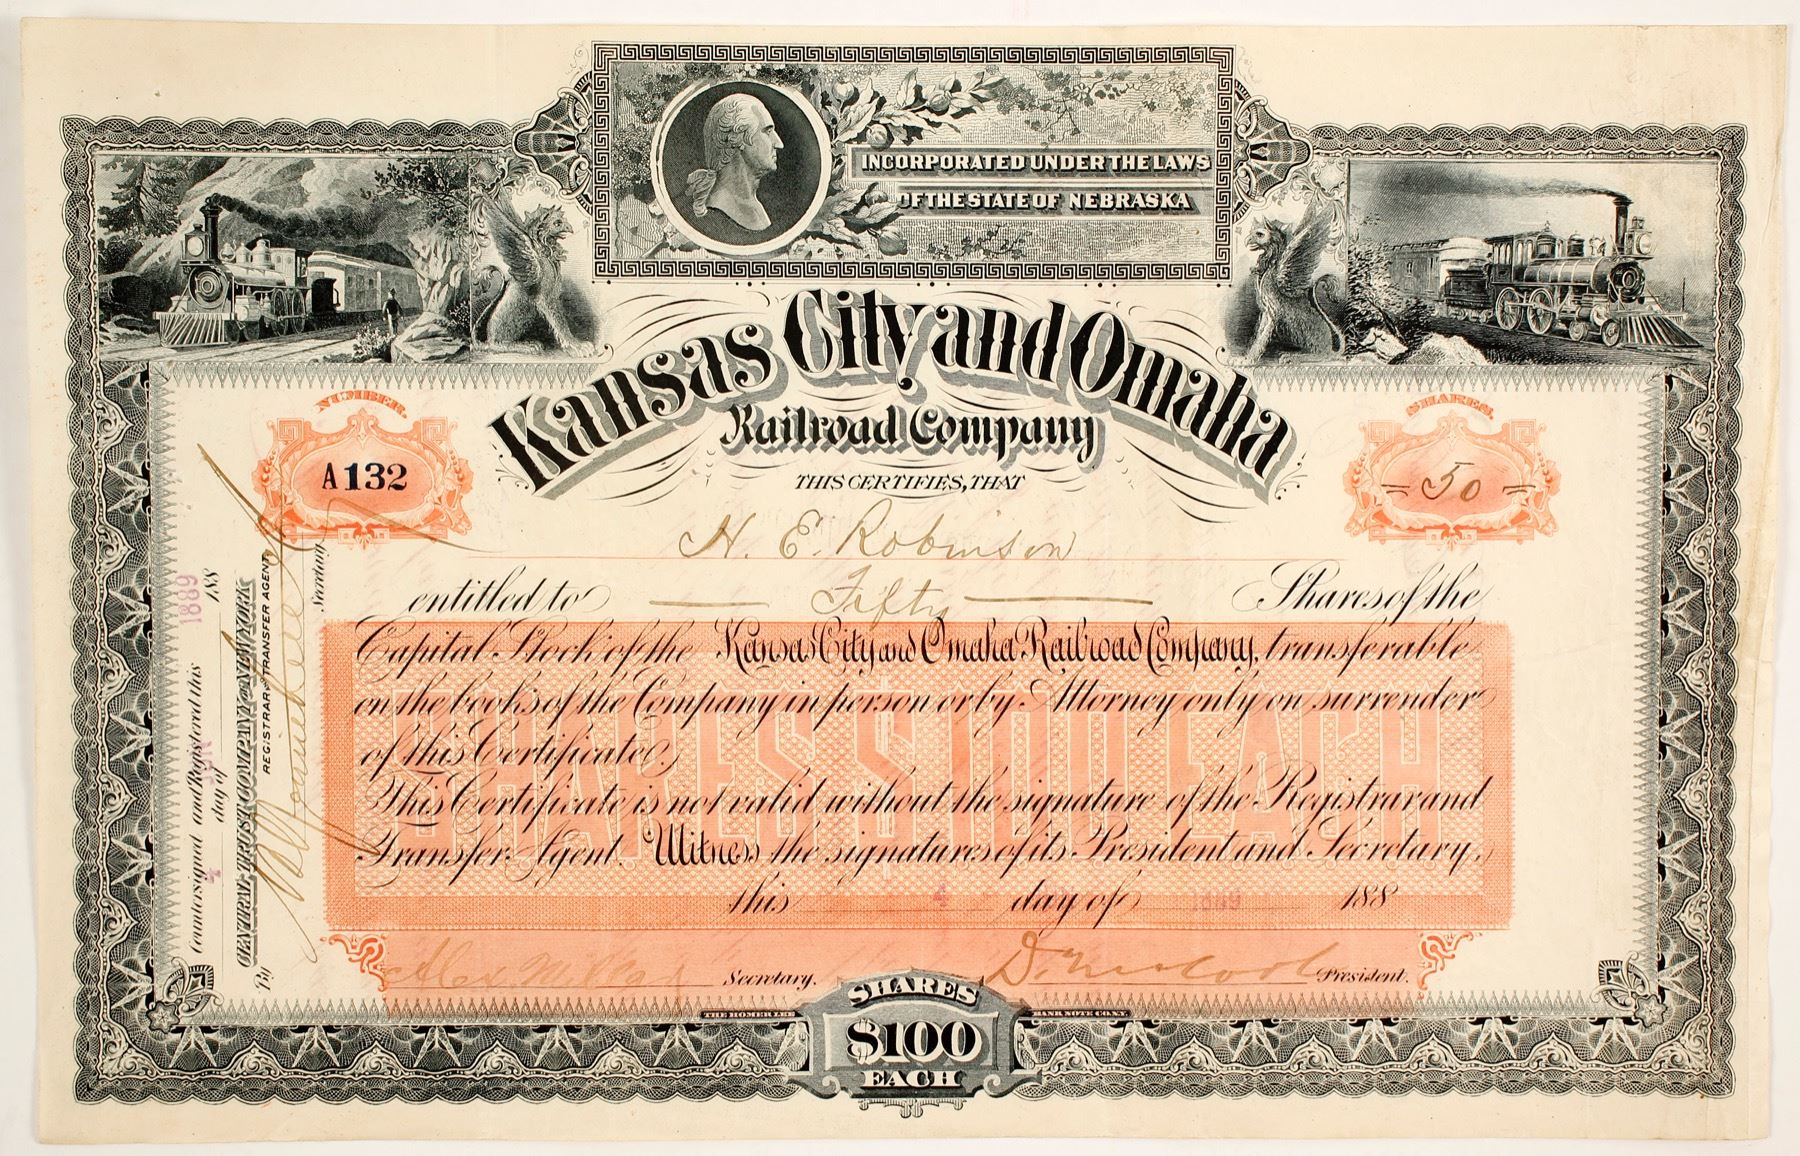 INCORPORATED UNDER THE LAWS
OF THE STATE OF NEBRASKA
Kansas City and Omaha
Railroad Company
NUMBER.
A132
SHARES.
50
THIS CERTIFIES, THAT
H. E. Robinson
entitled to Fifty Shares of the
Capital Stock of the Kansas City and Omaha Railroad Company, transferable
on the books of the Company in person or by Attorney only on surrender
of this Certificate.
This Certificate is not valid without the signature of the Registrar and
Transfer Agent. Witness the signatures of its President and Secretary,
this 4 day of 1889 188
SHARES $100 EACH
Secretary. President.
SHARES
$100
EACH
THE HOMER LEE BANK NOTE CO. N.Y.
Countersigned and Registered this
4 day of 188
1889
CENTRAL TRUST COMPANY OF NEW YORK
REGISTRAR & TRANSFER AGENT
By Secretary